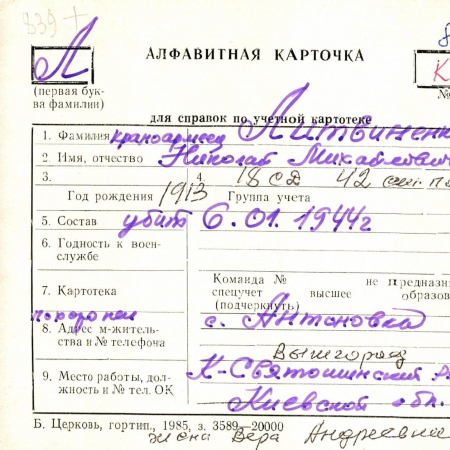 839 +
Л
АЛФАВИТНАЯ КАРТОЧКА
К
(первая бук-
ва фамилии)
№
для справок по учетной картотеке
1. Фамилия красноармеец Литвиненк
2. Имя, отчество Николай Михайлович
3. 4. 18 СД 42 сан. п
Год рождения 1913 Группа учета
5. Состав убит 6.01.1944г
6. Годность к воен-
службе
7. Картотека
Команда № не предназна
спецучет высшее образов
(подчеркнуть)
похоронен с. Антоновка
8. Адрес м-житель-
ства и № телефона
Вышгород
9. Место работы, дол-
жность и № тел. ОК
К-Святошинский р
Киевской обл.
Б. Церковь, гортип., 1985, з. 3589—20000
жена Вера Андреевна